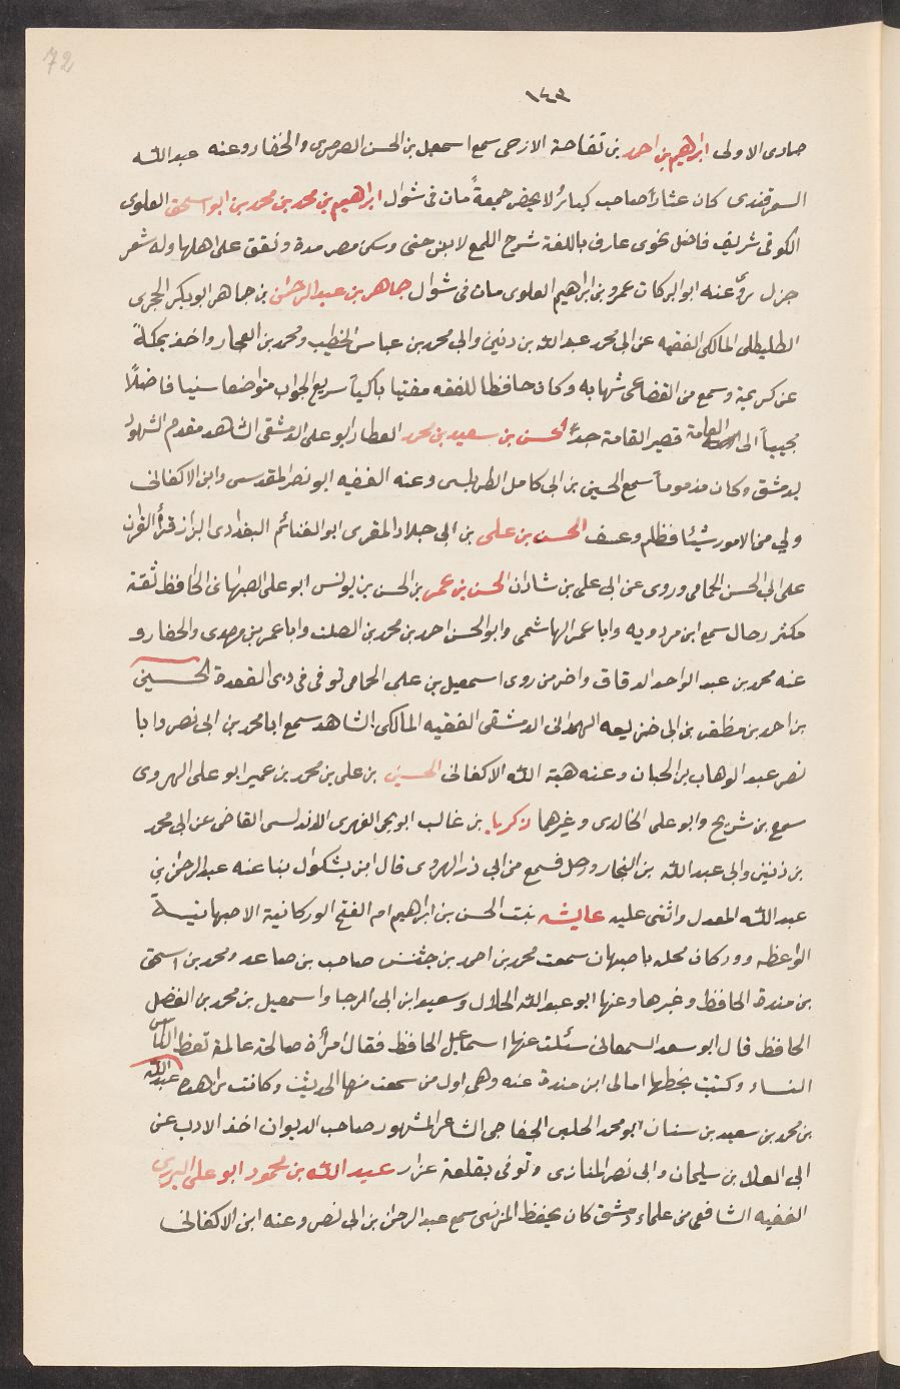 72
١٤٣
جمادى الاولى ابراهيم بن احمد بن تفاحة الازجى سمع اسمعيل بن الحسن الصرصرى والحفار وعنه عبد الله
السمرقندى كان عشاراً صاحب كبائر لا يحضر جمعة مات فى شوال ابراهيم بن محمد بن محمد بن ابو اسحق العلوى
الكوفى شريف فاضل نحوى عارف باللغة شرح اللمع لابن جنى وسكن مصر مدة ونفق على اهلها وله شعر
جزل روى عنه ابو البركات عمر بن ابراهيم العلوى مات فى شوال جماهر بن عبد الرحمن بن جماهر ابو بكر الحجرى
الطليطلى المالكى الفقيه عن ابى محمد عبد الله بن دنين وابى محمد بن عباس الخطيب ومحمد بن الفخار واخذ بمكة
عن كريمة وسمع من القضاعى شهابه وكان حافظا للفقه مفتيا ذكياً سريع الجواب متواضعا سنيا فاضلاً
محبباً الى العامة قصير القامة جداً الحسن بن سعيد بن محمد العطار ابو على الدمشقى الشاهد مقدم الشهود
بدمشق وكان مذموماً سمع الحسين بن ابى كامل الطرابلسى وعنه الفقيه ابو نصر المقدسى وابن الاكفانى
ولى من الامور شيئا فظلم وعسف الحسن بن على بن ابى خلاد المقرى ابو الغنائم البغدادى البزاز قرأ القران
على ابى الحسن الحمامى وروى عن ابى على بن شاذان الحسن بن عمر بن الحسن بن يونس ابو على الصبهانى الحافظ ثقة
مكثر رحال سمع ابن مردويه وابا عمر الهاشمى وابو الحسن احمد بن محمد بن الصلت وابا عمر بن مهدى والحفار و
عنه محمد بن عبد الواحد الدقاق واخر من روى اسمعيل بن على الحمامى توفى فى ذى القعدة الحسين
بن احمد بن مظفر بن ابى خريصه الهمدانى الدمشقى الفقيه المالكى الشاهد سمع ابا محمد بن ابى نصر وابا
نصر عبد الوهاب بن الجبان وعنه هبة الله الاكفانى الحسين بن على بن محمد بن عمير ابو على الهروى
سمع بن شريح وابو على الخالدى وغيرهما زكريا بن غالب ابو يحى الفهرى الاندلسى القاضى عن ابى محمد
بن ذنين وابى عبد الله بن الفخار ورحل فسمع من ابى ذر الهروى قال ابن بشكوال ثنا عنه عبد الرحمن بن
عبد الله المعدل واثنى عليه عايشه بنت الحسن بن ابراهيم ام الفتح الوركانية الاصبهانية
الواعظه ووركان محله باصبهان سمعت محمد بن احمد بن جشنس صاحب بن صاعد ومحمد بن اسحق
بن مندة الحافظ وغيرها وعنها ابو عبد الله الخلال وسعيد ابن ابى الرجا واسمعيل بن محمد بن الفضل
الحافظ قال ابو سعد السمعانى سئلت عنها اسماعيل الحافظ فقال امرأة صالحة عالمة تعظ الناس
النساء وكتبت بخطها امالى ابن مندة عنه وهى اول من سمعت منها الحديث وكانت زاهده عبد الله
بن محمد بن سعيد بن سنان ابو محمد الحلبى الخفاجى الشاعر المشهور صاحب الديوان اخذ الادب عن
ابى العلا بن سليمان وابى نصر المنازى وتوفى بقلعة عزاز عبد الله بن محمود ابو على البرزى
الفقيه الشافعى من علماء دمشق كان يحفظ المزنى سمع عبد الرحمن بن ابى نصر وعنه ابن الاكفانى